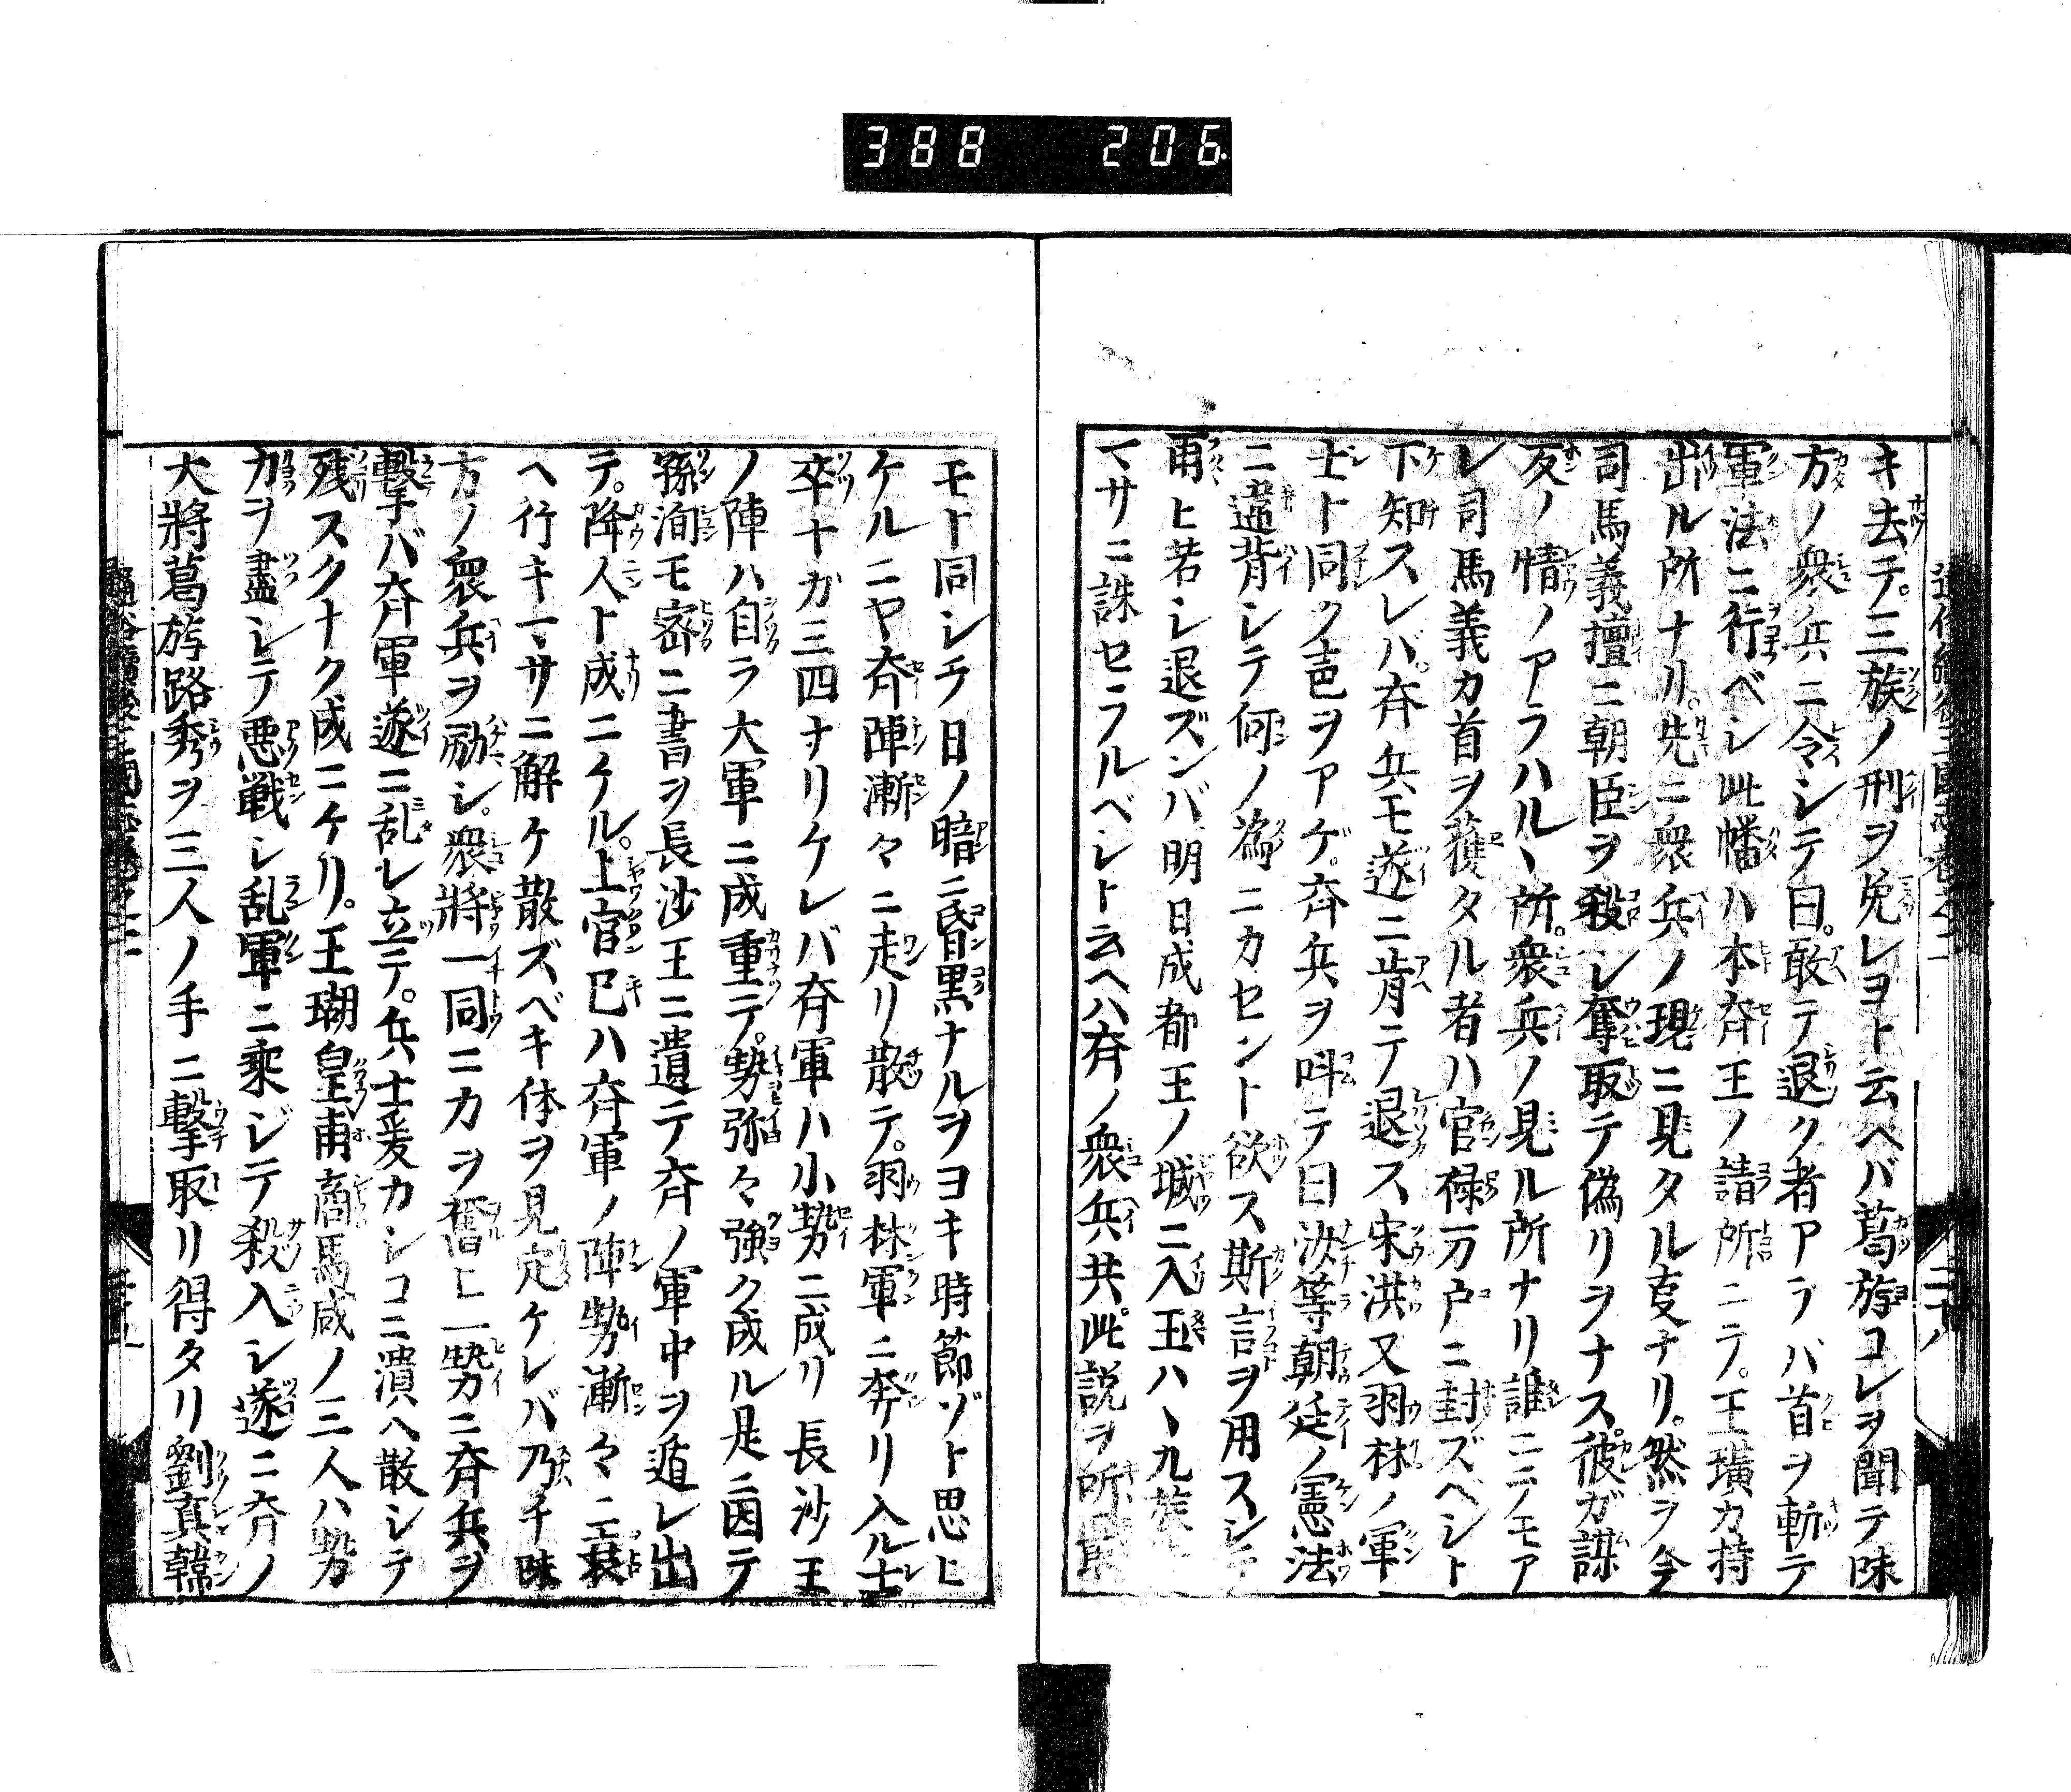 388 206
キ去テ。三族ノ刑ヲ免レヨト云ヘバ葛旂コレヲ聞テ味
方ノ衆兵ニ令シテ曰。敢テ退ク者アラバ首ヲ斬テ
軍法ニ行ベシ此幡ハ本斉王ノ請所ニテ。王璜カ持
出ル所ナリ。先ニ衆兵ノ現ニ見タル叓ナリ。然ヲ今
司馬義擅ニ朝臣ヲ殺シ奪取テ偽リヲナス。彼ガ謀
反ノ情ノアラハルヽ所。衆兵ノ見ル所ナリ誰ニテモア
レ司馬義カ首ヲ獲タル者ハ官禄万户ニ封ズヘシト
下知スレバ。斉兵モ遂ニ肯テ退ス宋洪又羽林ノ軍
士ト同ク声ヲアゲ。斉兵ヲ呌テ曰汝等朝廷ノ憲法
ニ違背シテ何ノ為ニカセント欲ス斯言ヲ用スシテ
甫ヒ若シ退ズンバ明日成都王ノ城ニ入玉ハヽ九族
マサニ誅セラルベシト云ヘハ斉ノ衆兵共。此説ヲ所
モト同シテ日ノ暗ニ昏黒ナルヲヨキ時節ゾト思ヒ
ケルニヤ斉陣漸々ニ走リ散テ。羽林軍ニ奔リ入ル士
卒十カ三四ナリケレバ斉軍ハ小勢ニ成リ長沙王
ノ陣ハ自ラ大軍ニ成重テ。勢弥々強ク成ル是ニ因テ
孫洵モ密ニ書ヲ長沙王ニ遺テ斉ノ軍中ヲ遁レ出
テ。降人ト成ニケル。上官巳ハ斉軍ノ陣勢漸々ニ衰
ヘ行キマサニ解ケ散ズベキ体ヲ見定ケレバ乃チ味
方ノ衆兵ヲ励シ。衆將一同ニカヲ奮ヒ一勢ニ斉兵ヲ
撃バ斉軍遂ニ乱レ立テ。兵士爰カシコニ潰ヘ散シテ
残スクナク成ニケリ。王瑚皇甫商馬咸ノ三人ハ勢
力ヲ盡シテ悪戦シ乱軍ニ乗ジテ殺入シ遂ニ斉ノ
大將葛旂路秀ヲ三人ノ手ニ撃取リ得タリ劉真韓